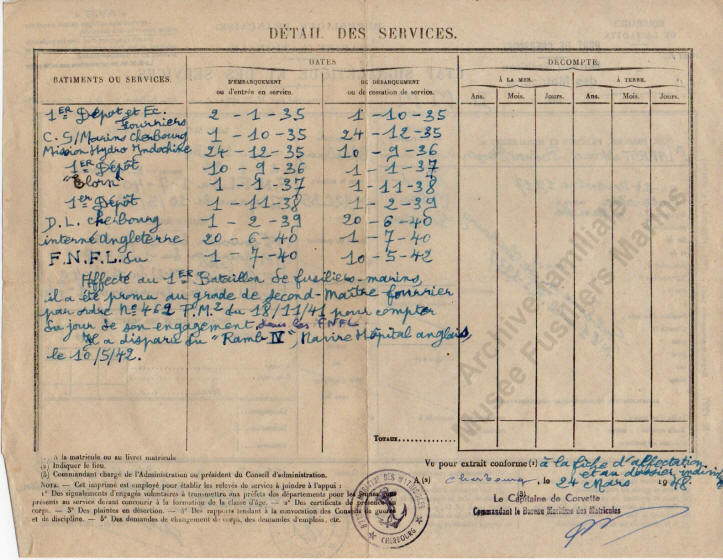 DÉTAIL DES SERVICES.
BATIMENTS OU SERVICES.
DATES
D'EMBARQUEMENT
ou d'entrée en service.
DE DÉBARQUEMENT
ou de cessation de service.
DÉCOMPTE.
À LA MER.
À TERRE.
Ans. Mois. Jours. Ans. Mois. Jours.
1ER Dépot et Ec. fourriers 2 - 1 - 35 1 - 10 - 35
C.S/Marine Cherbourg 1 - 10 - 35 24 - 12 - 35
Mission Hydro Indochine 24 - 12 - 35 10 - 9 - 36
1er Dépot 10 - 9 - 36 1 - 1 - 37
"Elorn" 1 - 1 - 37 1 - 11 - 38
1er Dépot 1 - 11 - 38 1 - 2 - 39
D.L. Cherbourg 1 - 2 - 39 20 - 6 - 40
interné Angleterre 20 - 6 - 40 1 - 7 - 40
F.N.F.L. du 1 - 7 - 40 10 - 5 - 42
Affecté au 1ER Bataillon de fusiliers-marins,
il a été promu au grade de second-maître fourrier
par ordre N° 462 P.M.2 du 18/11/41 pour compter
du jour de son engagement dans les FNFL.
Il a disparu du "Ramb IV", Navire Hôpital anglais,
le 10/5/42.
Archive familiale
Musée Fusiliers Marins
TOTAUX
(1) à la matricule ou au livret matricule
(2) Indiquer le lieu.
(3) Commandant chargé de l'Administration ou président du Conseil d'administration.
NOTA. — Cet imprimé est employé pour établir les relevés de service à joindre à l'appui :
1° Des signalements d'engagés volontaires à transmettre aux préfets des départements pour les jeunes
présents au service devant concourir à la formation de la classe d'âge. — 2° Des certificats de présence
corps. — 3° Des plaintes en désertion. — 4° Des rapports tendant à la convocation des Conseils de guerre
et de discipline. — 5° Des demandes de changement de corps, des demandes d'emplois, etc.
BUREAU MARITIME DES MATRICULES
CHERBOURG
Vu pour extrait conforme (1) à la fiche d'affectation
et au dossier individ
A (2) Cherbourg, le 24 Mars 1948
(3)
Le Capitaine de Corvette
Commandant le Bureau Maritime des Matricules